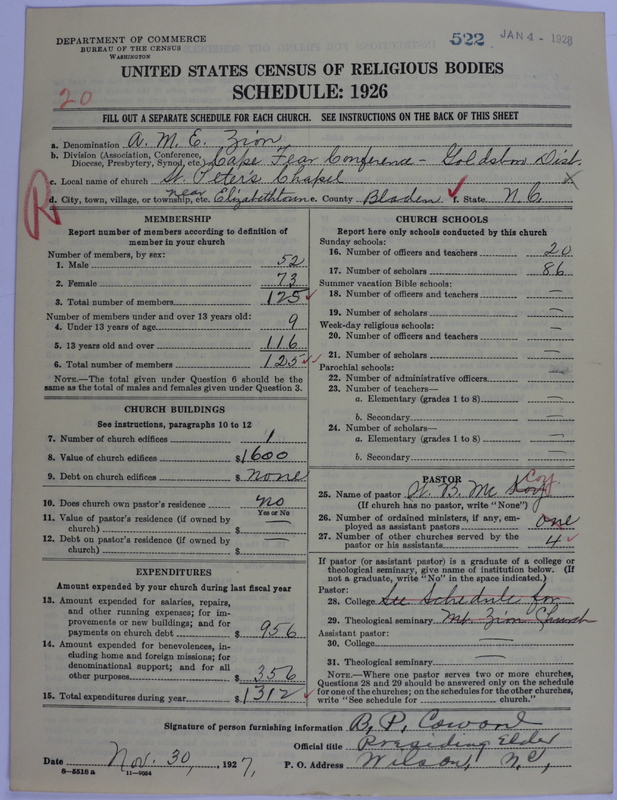 DEPARTMENT OF COMMERCE
BUREAU OF THE CENSUS
WASHINGTON
522 JAN 4 - 1928
UNITED STATES CENSUS OF RELIGIOUS BODIES
SCHEDULE: 1926
20
FILL OUT A SEPARATE SCHEDULE FOR EACH CHURCH. SEE INSTRUCTIONS ON THE BACK OF THIS SHEET
a. Denomination A. M. E. Zion
b. Division (Association, Conference, Diocese, Presbytery, Synod, etc.) Cape Fear Conference - Goldsboro Dist.
c. Local name of church St. Peter's Chapel
d. City, town, village, or township, etc. near Elizabethtown e. County Bladen f. State N. C.
R
MEMBERSHIP
Report number of members according to definition of
member in your church
Number of members, by sex:
1. Male 52
2. Female 73
3. Total number of members 125
Number of members under and over 13 years old:
4. Under 13 years of age 9
5. 13 years old and over 116
6. Total number of members 125
NOTE.—The total given under Question 6 should be the
same as the total of males and females given under Question 3.
CHURCH BUILDINGS
See instructions, paragraphs 10 to 12
7. Number of church edifices 1
8. Value of church edifices $1600
9. Debt on church edifices $ none
10. Does church own pastor's residence no
Yes or No
11. Value of pastor's residence (if owned by
church) $ —
12. Debt on pastor's residence (if owned by
church) $ —
EXPENDITURES
Amount expended by your church during last fiscal year
13. Amount expended for salaries, repairs,
and other running expenses; for im-
provements or new buildings; and for
payments on church debt $ 956
14. Amount expended for benevolences, in-
cluding home and foreign missions; for
denominational support; and for all
other purposes $ 356
15. Total expenditures during year $ 1312
CHURCH SCHOOLS
Report here only schools conducted by this church
Sunday schools:
16. Number of officers and teachers 20
17. Number of scholars 86
Summer vacation Bible schools:
18. Number of officers and teachers —
19. Number of scholars —
Week-day religious schools:
20. Number of officers and teachers —
21. Number of scholars —
Parochial schools:
22. Number of administrative officers —
23. Number of teachers—
a. Elementary (grades 1 to 8) —
b. Secondary —
24. Number of scholars—
a. Elementary (grades 1 to 8) —
b. Secondary —
PASTOR
Coy
25. Name of pastor W. B. Mc Koy
(If church has no pastor, write "None")
26. Number of ordained ministers, if any, em-
ployed as assistant pastors one
27. Number of other churches served by the
pastor or his assistants 4
If pastor (or assistant pastor) is a graduate of a college or
theological seminary, give name of institution below. (If
not a graduate, write "No" in the space indicated.)
Pastor:
28. College See Schedule for
29. Theological seminary Mt. Zion Church
Assistant pastor:
30. College —
31. Theological seminary —
NOTE.—Where one pastor serves two or more churches,
Questions 28 and 29 should be answered only on the schedule
for one of the churches; on the schedules for the other churches,
write "See schedule for church."
Signature of person furnishing information B. P. Coward
Official title Presiding Elder
Date Nov. 30, 1927, P. O. Address Wilson, N.C.,
8—5518 a 11—9054